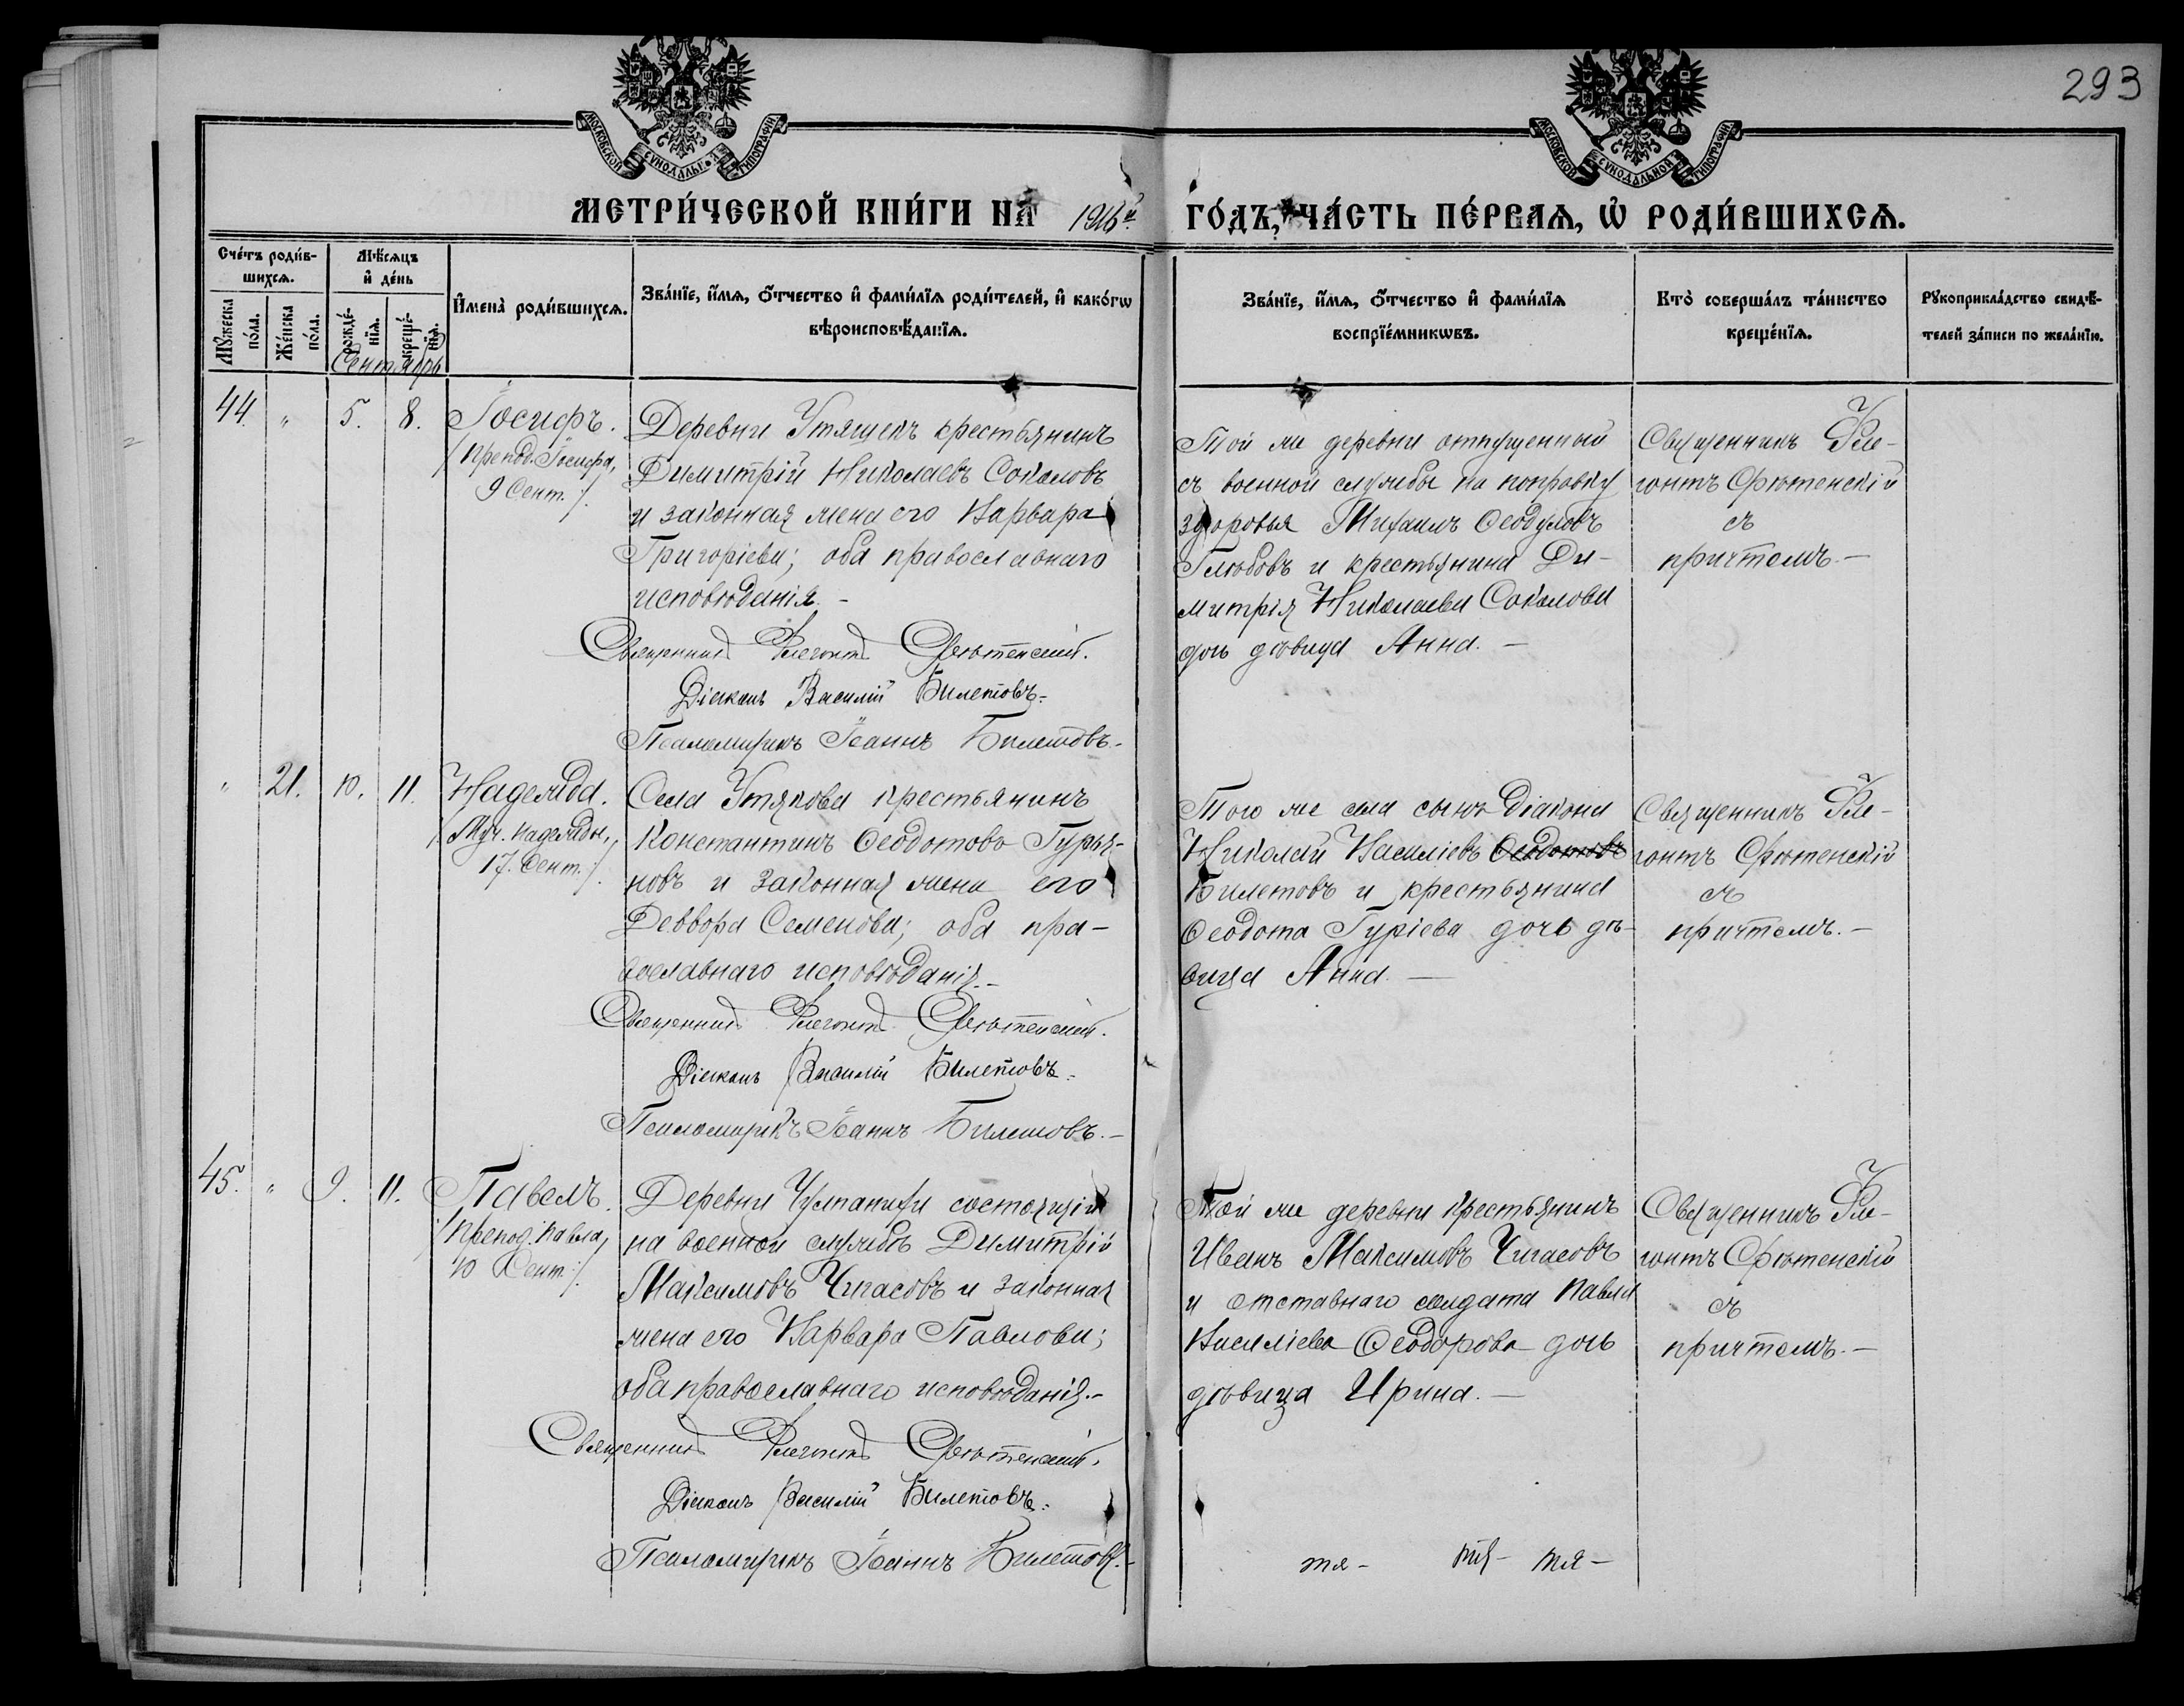 293
МОСКОВСКОЙ СѴНОДАЛЬНОЙ ТИПОГРАФІИ
МОСКОВСКОЙ СѴНОДАЛЬНОЙ ТИПОГРАФІИ
МЕТРИ́ЧЕСКОЙ КНИ́ГИ НА 1916й. ГО́ДЪ, ЧА́СТЬ ПЕ́РВАЯ, Ѡ РОДИ́ВШИХСЯ.
Сче́тъ роди́в-
шихся.
Му́жеска по́ла.
Же́нска по́ла.
Мѣ́сяцъ
и де́нь
рожде́-нїя.
креще́-нїя.
Сентябрь
Имена̀ роди́вшихся.
Зва́нїе, и́мя, ѻ́тчество и фами́лїя роди́телей, и како́гѡ
вѣроисповѣ́данїя.
Зва́нїе, и́мя, ѻ́тчество и фами́лїя
воспрїе́мникѡвъ.
Кто̀ соверша́лъ та́инство
креще́нїя.
Рꙋкоприкла́дство свидѣ́-
телей за́писи по жела́нїю.
44. " 5. 8. Іосифъ.
/Препод. Іосифа,
9 Сент./.
Деревни Утяшекъ крестьянинъ
Димитрій Николаевъ Соколовъ
и законная жена его Варвара
Григоріева; оба православнаго
исповѣданія. -
Священникъ Флегонтъ Срѣтенскій.
Діаконъ Василій Билетовъ.
Псаломщикъ Іоаннъ Билетовъ. -
Той же деревни отпущенный
съ военной службы на поправку
здоровья Михаилъ Ѳеодуловъ
и крестьянина Ди-
митрія Николаева Соколова
дочь дѣвица Анна. -
Священникъ Фле-
гонтъ Срѣтенскій
съ
причтомъ. -
" 21. 10. 11. Надежда.
/Муч. Надежды,
17. Сент./.
Села Утякова крестьянинъ
Константинъ Ѳеодотовъ Гурья-
новъ и законная жена его
Деввора Семенова; оба пра-
вославнаго исповѣданія. -
Священникъ Флегонтъ Срѣтенскій.
Діаконъ Василій Билетовъ.
Псаломщикъ Іоаннъ Билетовъ. -
Того же села сынъ діакона
Николай Василіевъ Ѳеодотовъ
Билетовъ и крестьянина
Ѳеодота Гуріева дочь дѣ-
вица Анна. -
Священникъ Фле-
гонтъ Срѣтенскій
съ
причтомъ. -
45. " 9. 11. Павелъ.
/Препод. Павла,
10 Сент./.
Деревни состоящій
на военной службѣ Димитрій
Максимовъ Чигасовъ и законная
жена его Варвара Павлова;
оба православнаго исповѣданія. -
Священникъ Флегонтъ Срѣтенскій.
Діаконъ Василій Билетовъ.
Псаломщикъ Іоаннъ Билетовъ. -
Той же деревни крестьянинъ
Иванъ Максимовъ Чигасовъ
и отставнаго солдата Павла
Василіева Ѳеодорова дочь
дѣвица Ирина. -
Священникъ Фле-
гонтъ Срѣтенскій
съ
причтомъ. -